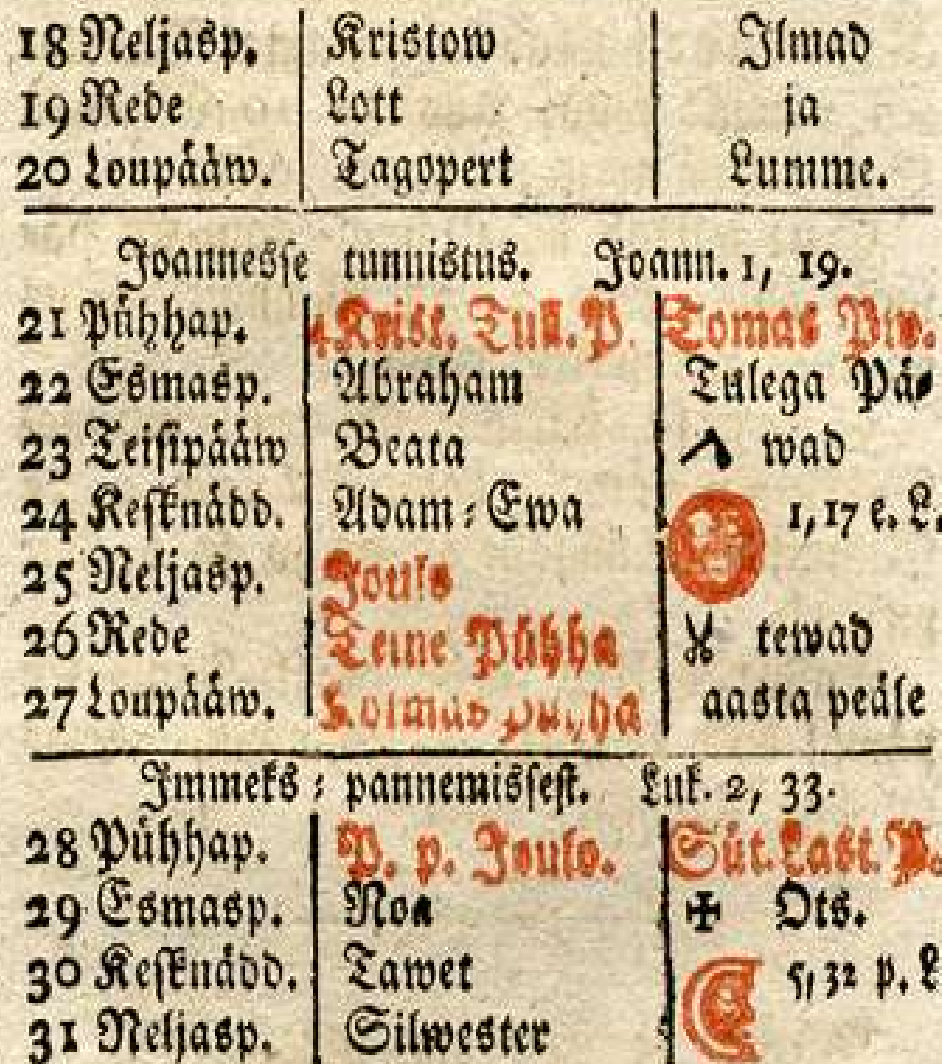 18 Neljasp. Kristow Ilmad
19 Rede Lott ja
20 Loupääw. Tagopert Lumme.
Joannesse tunnistus. Joann. 1, 19.
21 Pühhap. 4 Krist. Tull. P. Tomas Pw.
22 Esmasp. Abraham Tulega Pä-
23 Teisipääw Beata wad
24 Keſknädd. Adam-Ewa 1,17 e. L.
25 Neljasp. Jouls
26 Rede Teine Pühha tewad
27 Loupääw. Kolmas Pühha aasta peäle
Immeks-pannemisseſt. Luk. 2, 33.
28 Pühhap. P. p. Joulo. Süt. Last. P.
29 Esmasp. Noa Ots.
30 Keſknädd. Tawet 5,32 p. L
31 Neljasp. Silwester